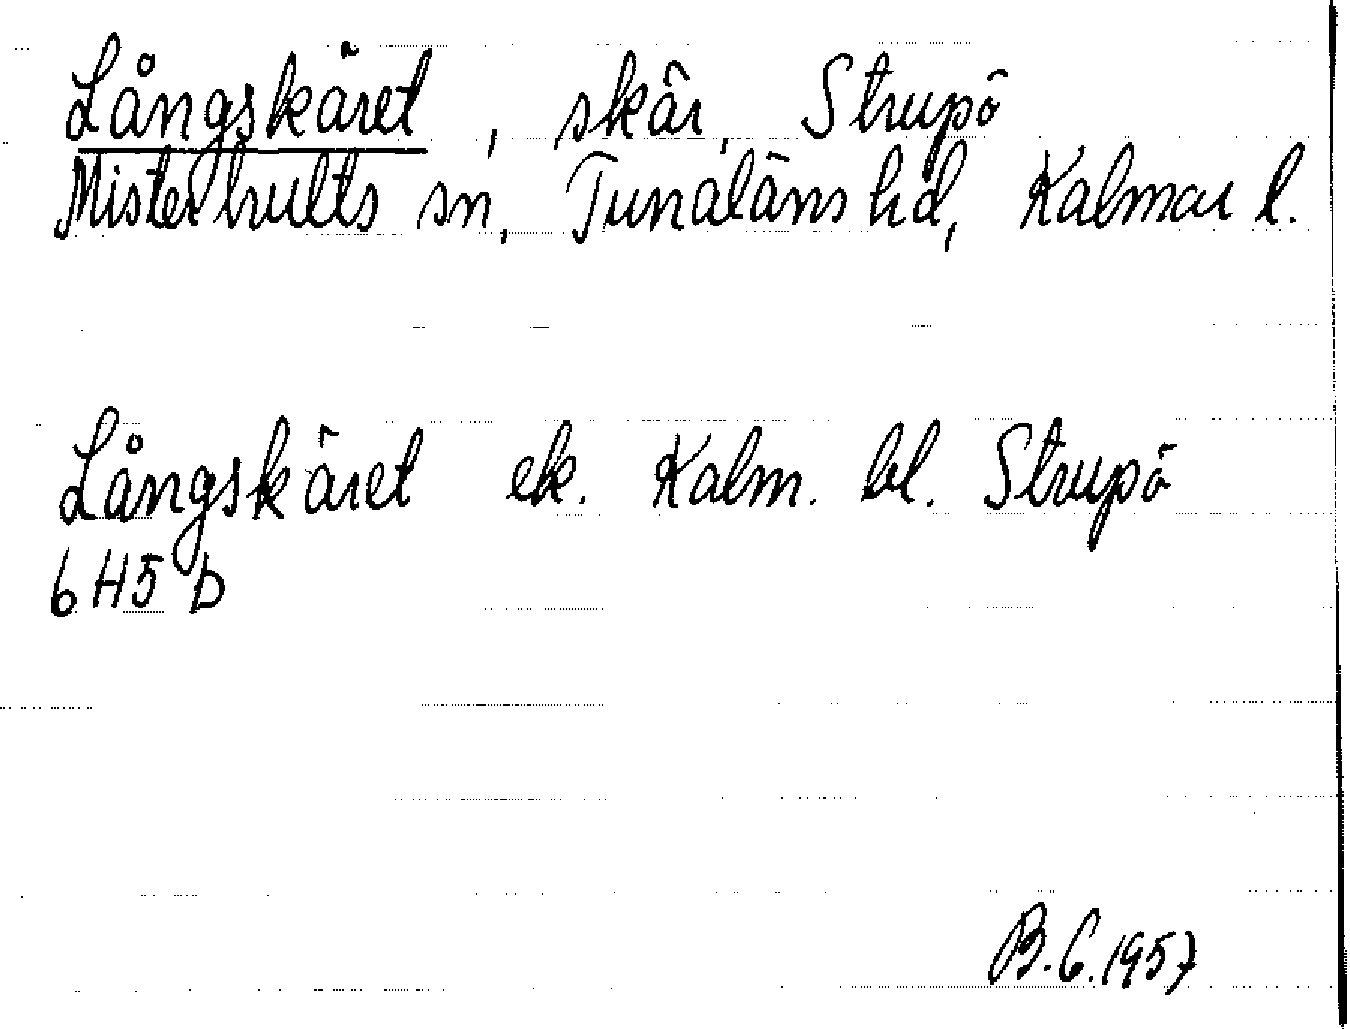 Långskäret, skär, Strupö
Misterhults sn, Tunaläns hd, Kalmar l.
Långskäret ek. Kalm. bl. Strupö
6 H5 b
B.C. 1957